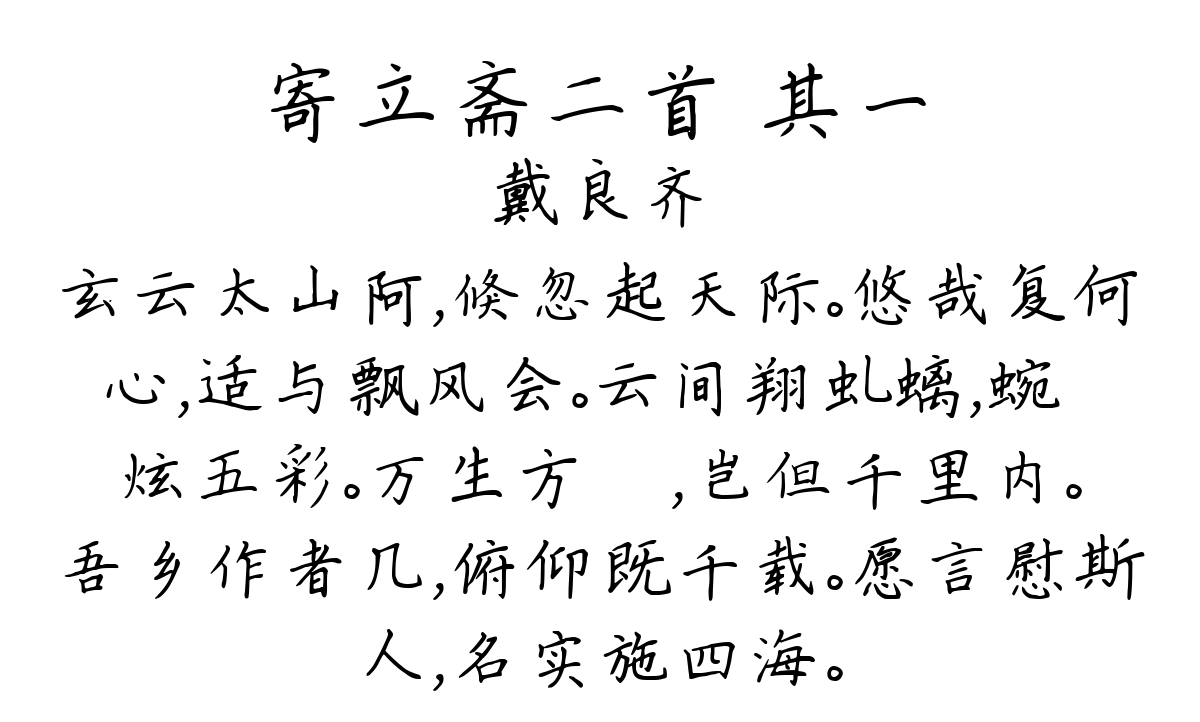 寄立斋二首 其一
戴良齐
玄云太山阿,倏忽起天际。悠哉复何
心,适与飘风会。云间翔虬螭,蜿
炫五彩。万生方 ,岂但千里内。
吾乡作者几,俯仰既千载。愿言慰斯
人,名实施四海。